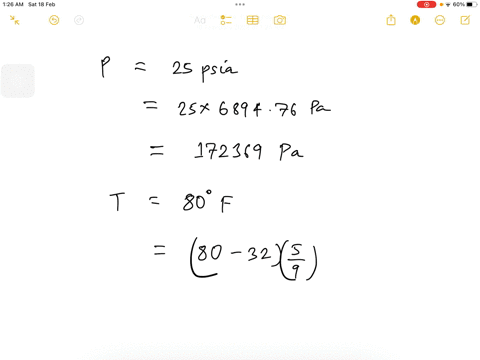 1:26 AM Sat 18 Feb
60%
Aa
P = 25 psia
= 25 × 6894.76 Pa
= 172369 Pa
T = 80° F
= (80 - 32)(5/9)